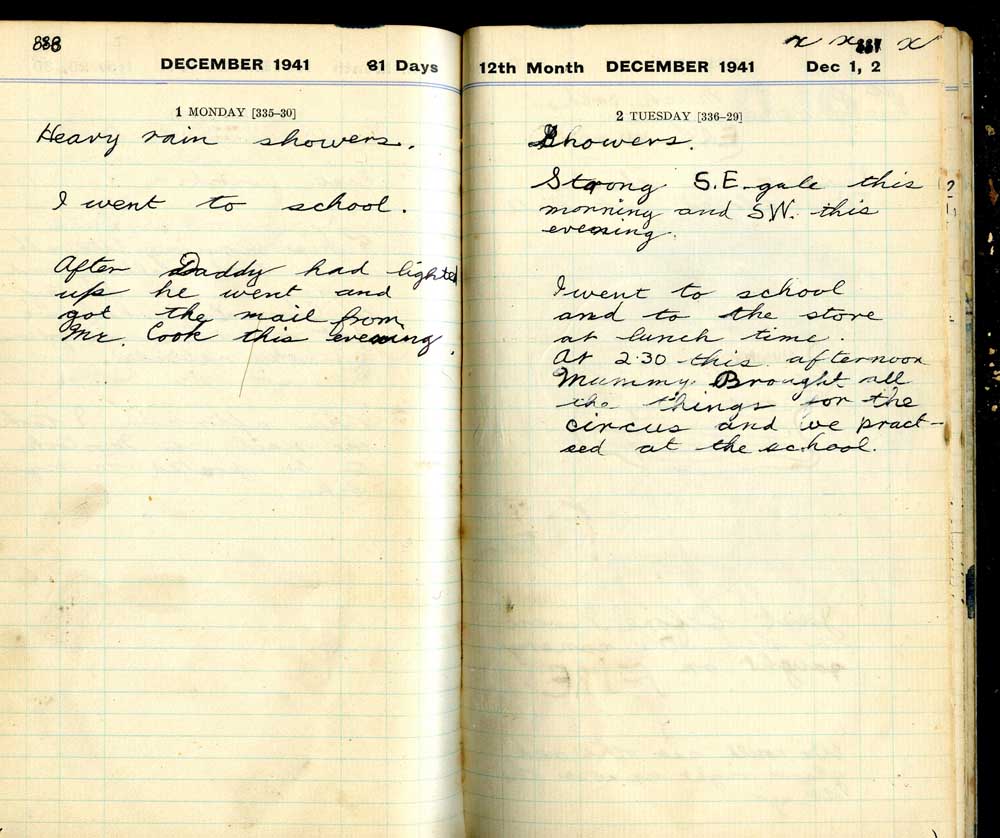 DECEMBER 1941 31 Days
1 MONDAY [335–30]
Heavy rain showers.
I went to school.
After Daddy had lighted
up he went and
got the mail from
Mr. Cook this evening.
x x x
12th Month DECEMBER 1941 Dec 1, 2
2 TUESDAY [336–29]
Showers.
Strong S.E. gale this
morning and SW. this
evening.
I went to school
and to the store
at lunch time.
At 2.30 this afternoon
Mummy Brought all
the things for the
circus and we pract-
sed at the school.